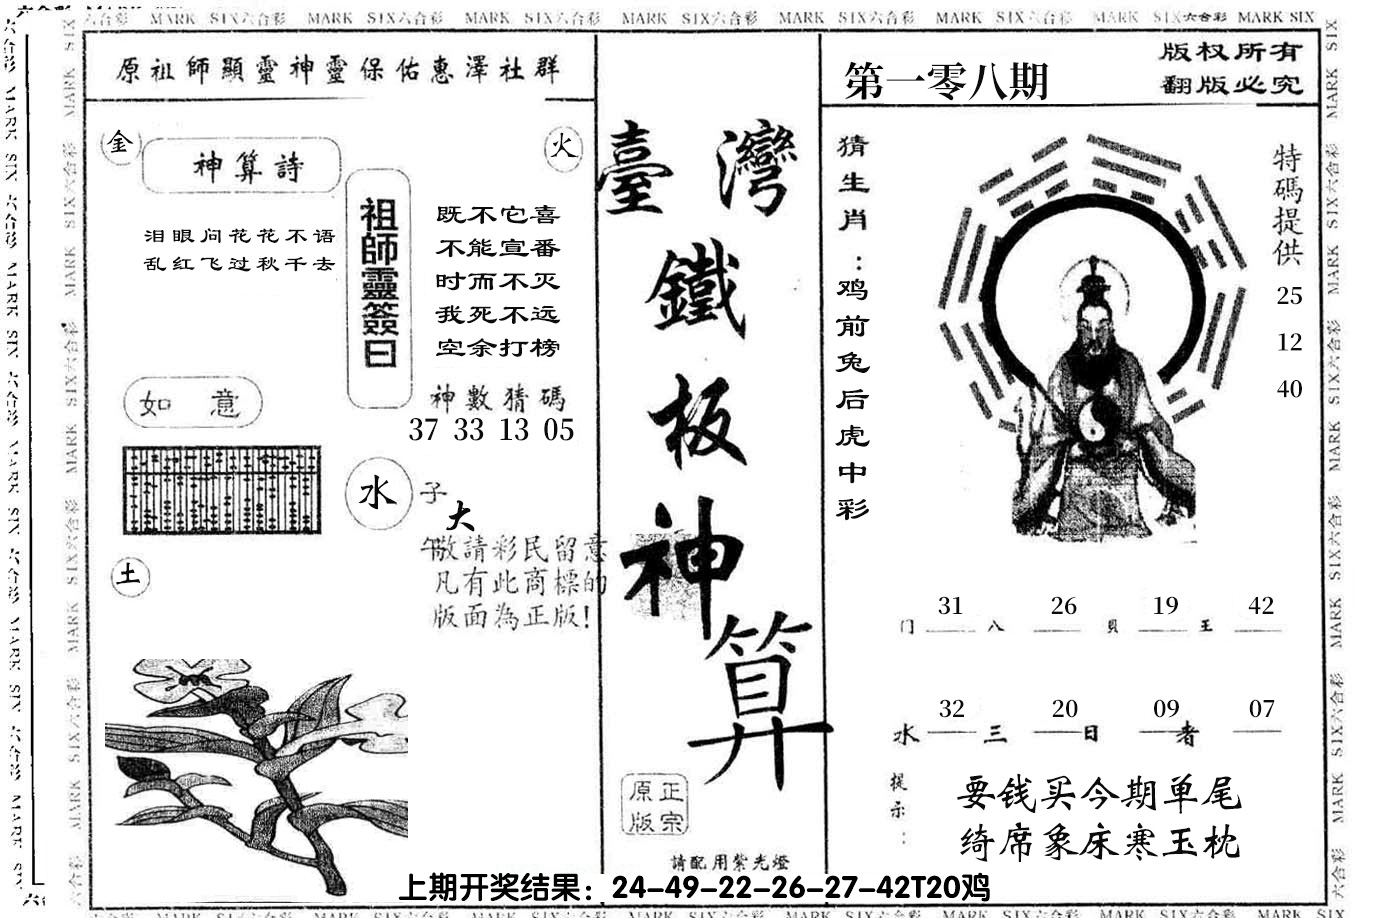 MARK SIX六合彩 MARK SIX六合彩 MARK SIX六合彩 MARK SIX六合彩 MARK SIX六合彩 MARK SIX六合彩 MARK SIX六合彩 MARK SIX
原祖師顯靈神靈保佑惠澤社群
金
神算詩
火
泪眼问花花不语
乱红飞过秋千去
祖師靈簽曰
既不它喜
不能宣番
时而不灭
我死不远
空余打榜
神數猜碼
37 33 13 05
如意
水
子
大
午
敬請彩民留意
凡有此商標的
版面為正版!
土
臺灣
鐵
板
神
算
正宗
原版
請配用紫光燈
第一零八期
版权所有
翻版必究
猜生肖:鸡前兔后虎中彩
特碼提供
25
12
40
31 26 19 42
门 八 貝 王
32 20 09 07
水 三 日 者
提示:
要钱买今期单尾
绮席象床寒玉枕
上期开奖结果：24-49-22-26-27-42T20鸡